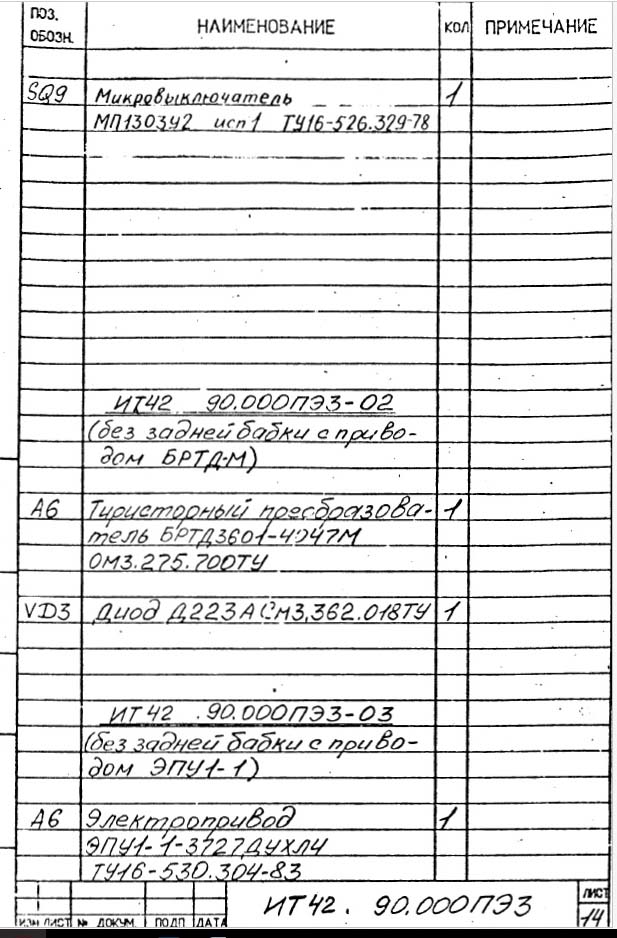 ПОЗ. ОБОЗН. НАИМЕНОВАНИЕ КОЛ ПРИМЕЧАНИЕ
SQ9 Микровыключатель 1
МП1303У2 исп1 ТУ16-526.329-78
ИТ42 90.000ПЭ3-02
(без задней бабки с приво-
дом БРТД-М)
А6 Тиристорный преобразова- 1
тель БРТД3601-4047М
ОМ3.275.700ТУ
VD3 Диод Д223А СМ3.362.018ТУ 1
ИТ42 .90.000ПЭ3-03
(без задней бабки с приво-
дом ЭПУ1-1)
А6 Электропривод 1
ЭПУ1-1-3727ДУХЛ4
ТУ16-530.304-83
ИТ42. 90.000ПЭ3
ЛИСТ
14
ИЗМ ЛИСТ № ДОКУМ. ПОДП ДАТА